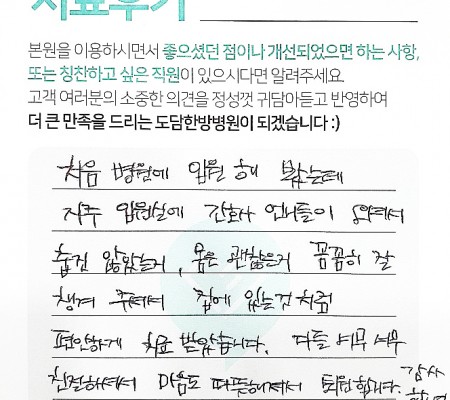 치료후기
본원을 이용하시면서 좋으셨던 점이나 개선되었으면 하는 사항,
또는 칭찬하고 싶은 직원이 있으시다면 알려주세요.
고객 여러분의 소중한 의견을 정성껏 귀담아듣고 반영하여
더 큰 만족을 드리는 도담한방병원이 되겠습니다 :)
처음 병원에 입원 해 봤는데
자주 입원실에 간호사 언니들이 오셔서
춥진 않았는지, 몸은 괜찮은지 꼼꼼히 잘
챙겨 주셔서 집에 있는것 처럼
편안하게 치료 받았습니다. 다들 너무 너무
친절하셔서 마음도 따뜻해져서 퇴원합니다. 감사
합니다